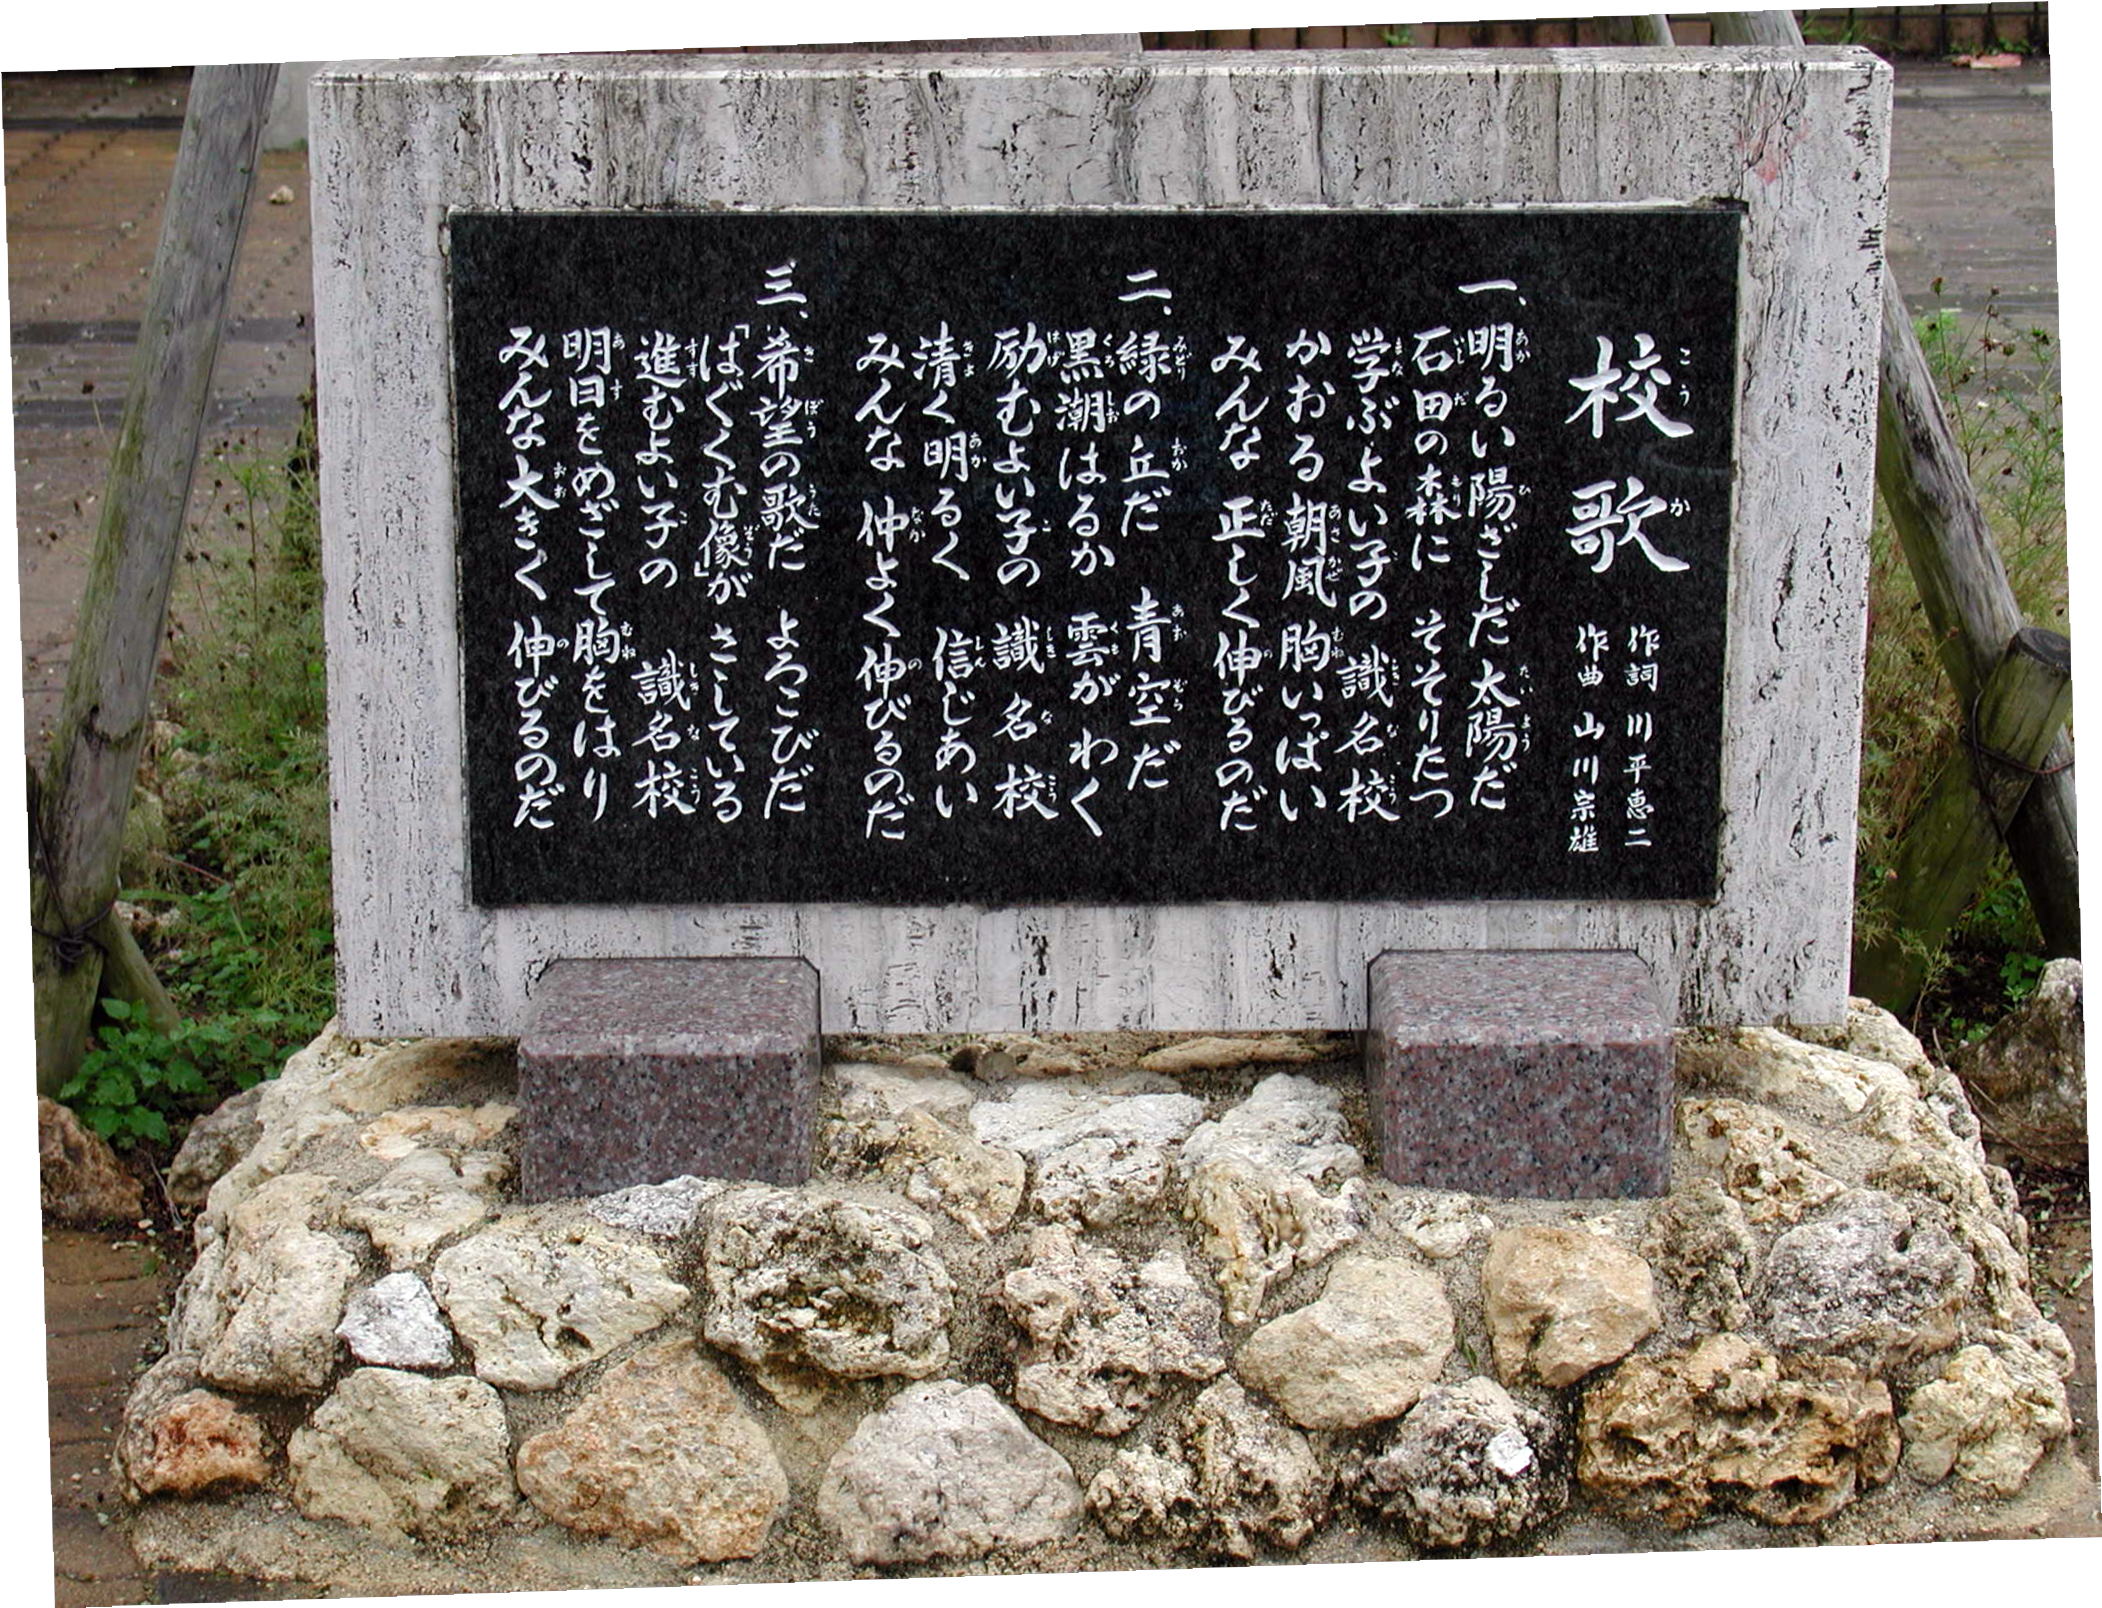 校歌
作詞 川平恵二
作曲 山川宗雄
一、明るい陽ざしだ 太陽だ
石田の森に そそりたつ
学ぶよい子の 識名校
かおる朝風 胸いっぱい
みんな 正しく伸びるのだ
二、緑の丘だ 青空だ
黒潮はるか 雲がわく
励むよい子の 識名校
清く明るく 信じあい
みんな 仲よく伸びるのだ
三、希望の歌だ よろこびだ
「はぐくむ像」が さしている
進むよい子の 識名校
明日をめざして胸をはり
みんな大きく 伸びるのだ